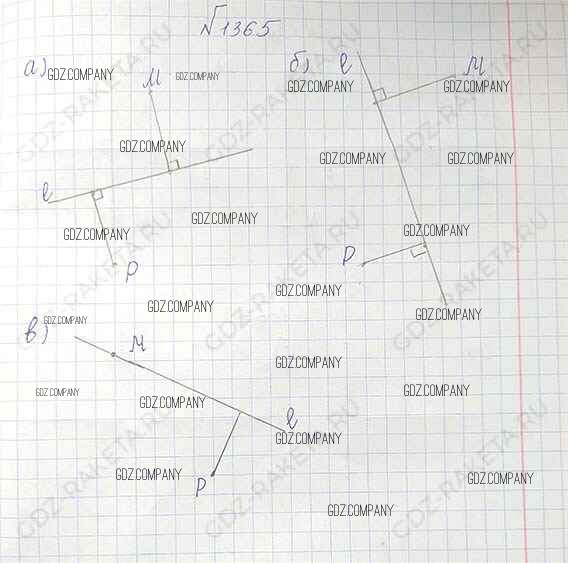 √1365
а) GDZ.COMPANY M GDZ.COMPANY
б) l M
GDZ.COMPANY GDZ.COMPANY
GDZ.COMPANY GDZ.COMPANY GDZ.COMPANY
l GDZ.COMPANY
GDZ.COMPANY P
P GDZ.COMPANY
GDZ.COMPANY GDZ.COMPANY
GDZ.COMPANY
в) GDZ.COMPANY M
GDZ.COMPANY
GDZ.COMPANY GDZ.COMPANY GDZ.COMPANY
l
GDZ.COMPANY
GDZ.COMPANY P
GDZ.COMPANY
GDZ.COMPANY
GDZ-RAKETA.RU
GDZ-RAKETA.RU
GDZ-RAKETA.RU
GDZ-RAKETA.RU
GDZ-RAKETA.RU
GDZ-RAKETA.RU
GDZ-RAKETA.RU
GDZ-RAKETA.RU
GDZ-RAKETA.RU